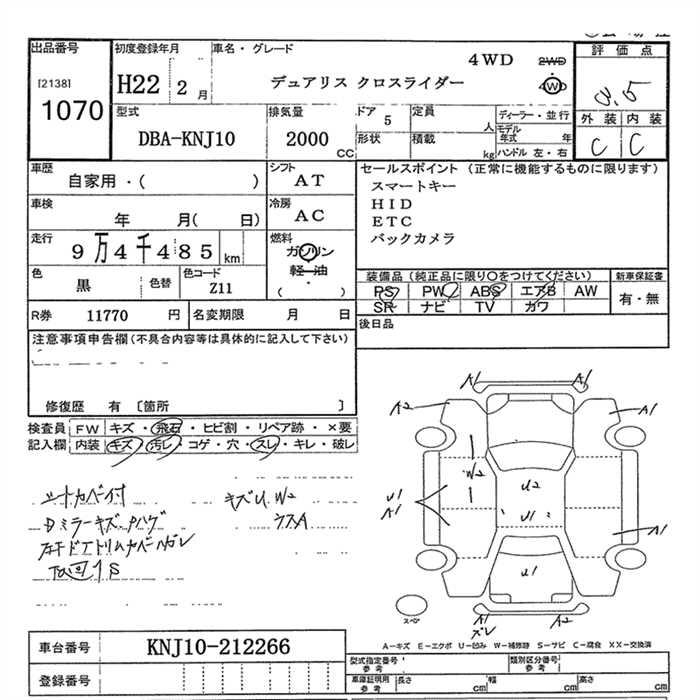 出品番号
[2138]
1070
初度登録年月
H22 2 月
車名・グレード
4WD
2WD
4WD
デュアリス クロスライダー
評価点
3.5
外装 内装
C C
型式
DBA-KNJ10
排気量
2000 CC
ドア 5
定員 人
形状
積載 kg
ディーラー・並行
モデル年式 年
ハンドル 左・右
車歴
自家用・( )
シフト
AT
車検
年 月( 日)
冷房
AC
走行
9万4千485 km
燃料
ガソリン
軽油
・
( )
色
黒
色替
色コード
Z11
R券 11770 円
名変期限 月 日
セールスポイント (正常に機能するものに限ります)
スマートキー
HID
ETC
バックカメラ
装備品(純正品に限り○をつけてください)
PS PW ABS エアB AW
SR ナビ TV カワ
新車保証書
有・無
後日品
注意事項申告欄(不具合内容等は具体的に記入して下さい)
修復歴 有 〔箇所 〕
検査員 FW キズ・飛石・ヒビ割・リペア跡・×要
記入欄 内装 キズ・汚レ・コゲ・穴・スレ・キレ・破レ
シートカバー付
キズU W2
ウスA
A1 A1
A2 A1
W2
U2
U1
A1
U1
A1
U1
A1 A2
ズレ
スペア
A-キズ E-エクボ U-凹み W-補修跡 S-サビ C-腐食 XX-交換済
車台番号 KNJ10-212266
登録番号
型式指定番号 参考
類別区分番号 参考
車庫証明用 参考 長さ cm 幅 cm 高さ cm